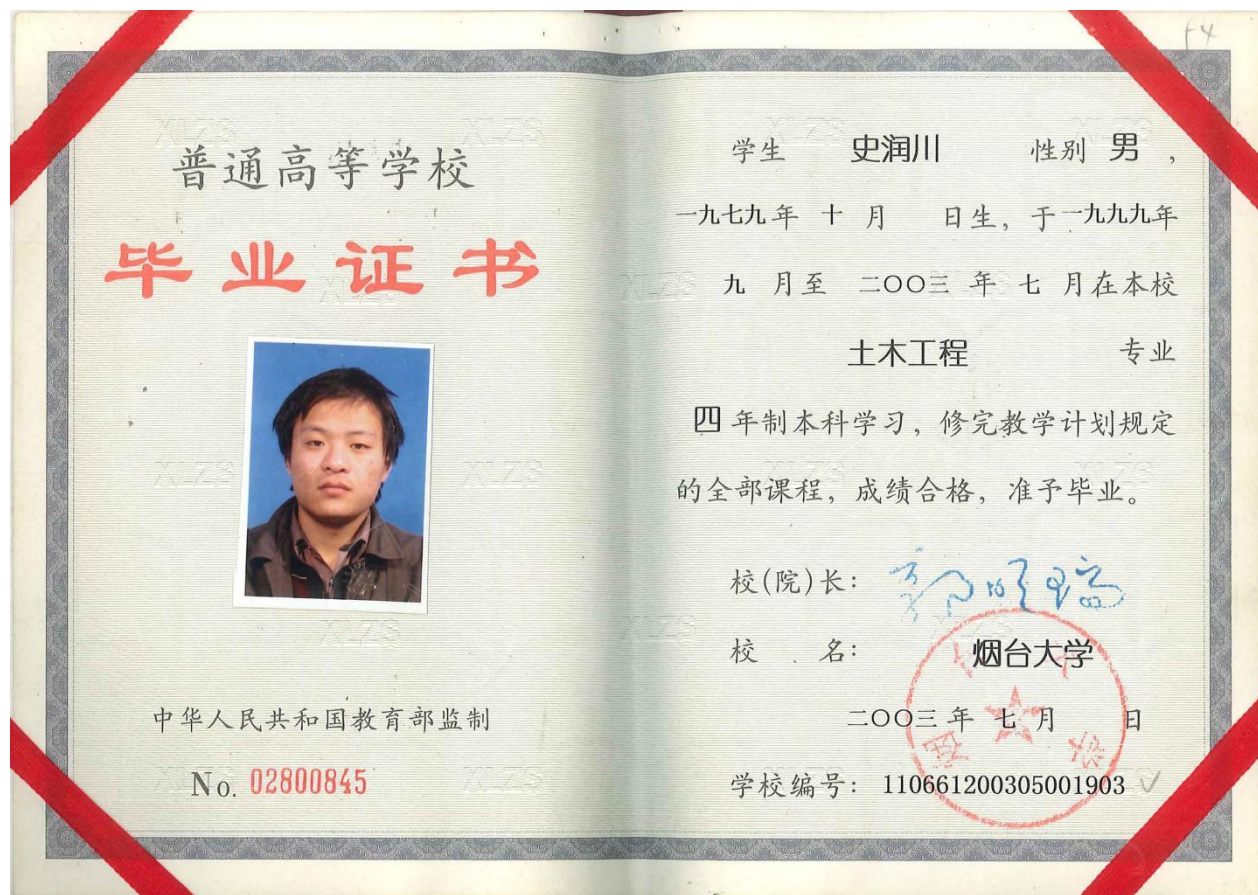 普通高等学校
毕业证书
中华人民共和国教育部监制
No. 02800845
54
学生 史润川 性别 男，
一九七九年 十 月 日生，于一九九九年
九 月至 二〇〇三 年 七 月在本校
土木工程 专业
四 年制本科学习，修完教学计划规定
的全部课程，成绩合格，准予毕业。
校(院)长：
校 名： 烟台大学
二〇〇三年 七 月 日
学校编号： 110661200305001903
烟台大学
XLZS